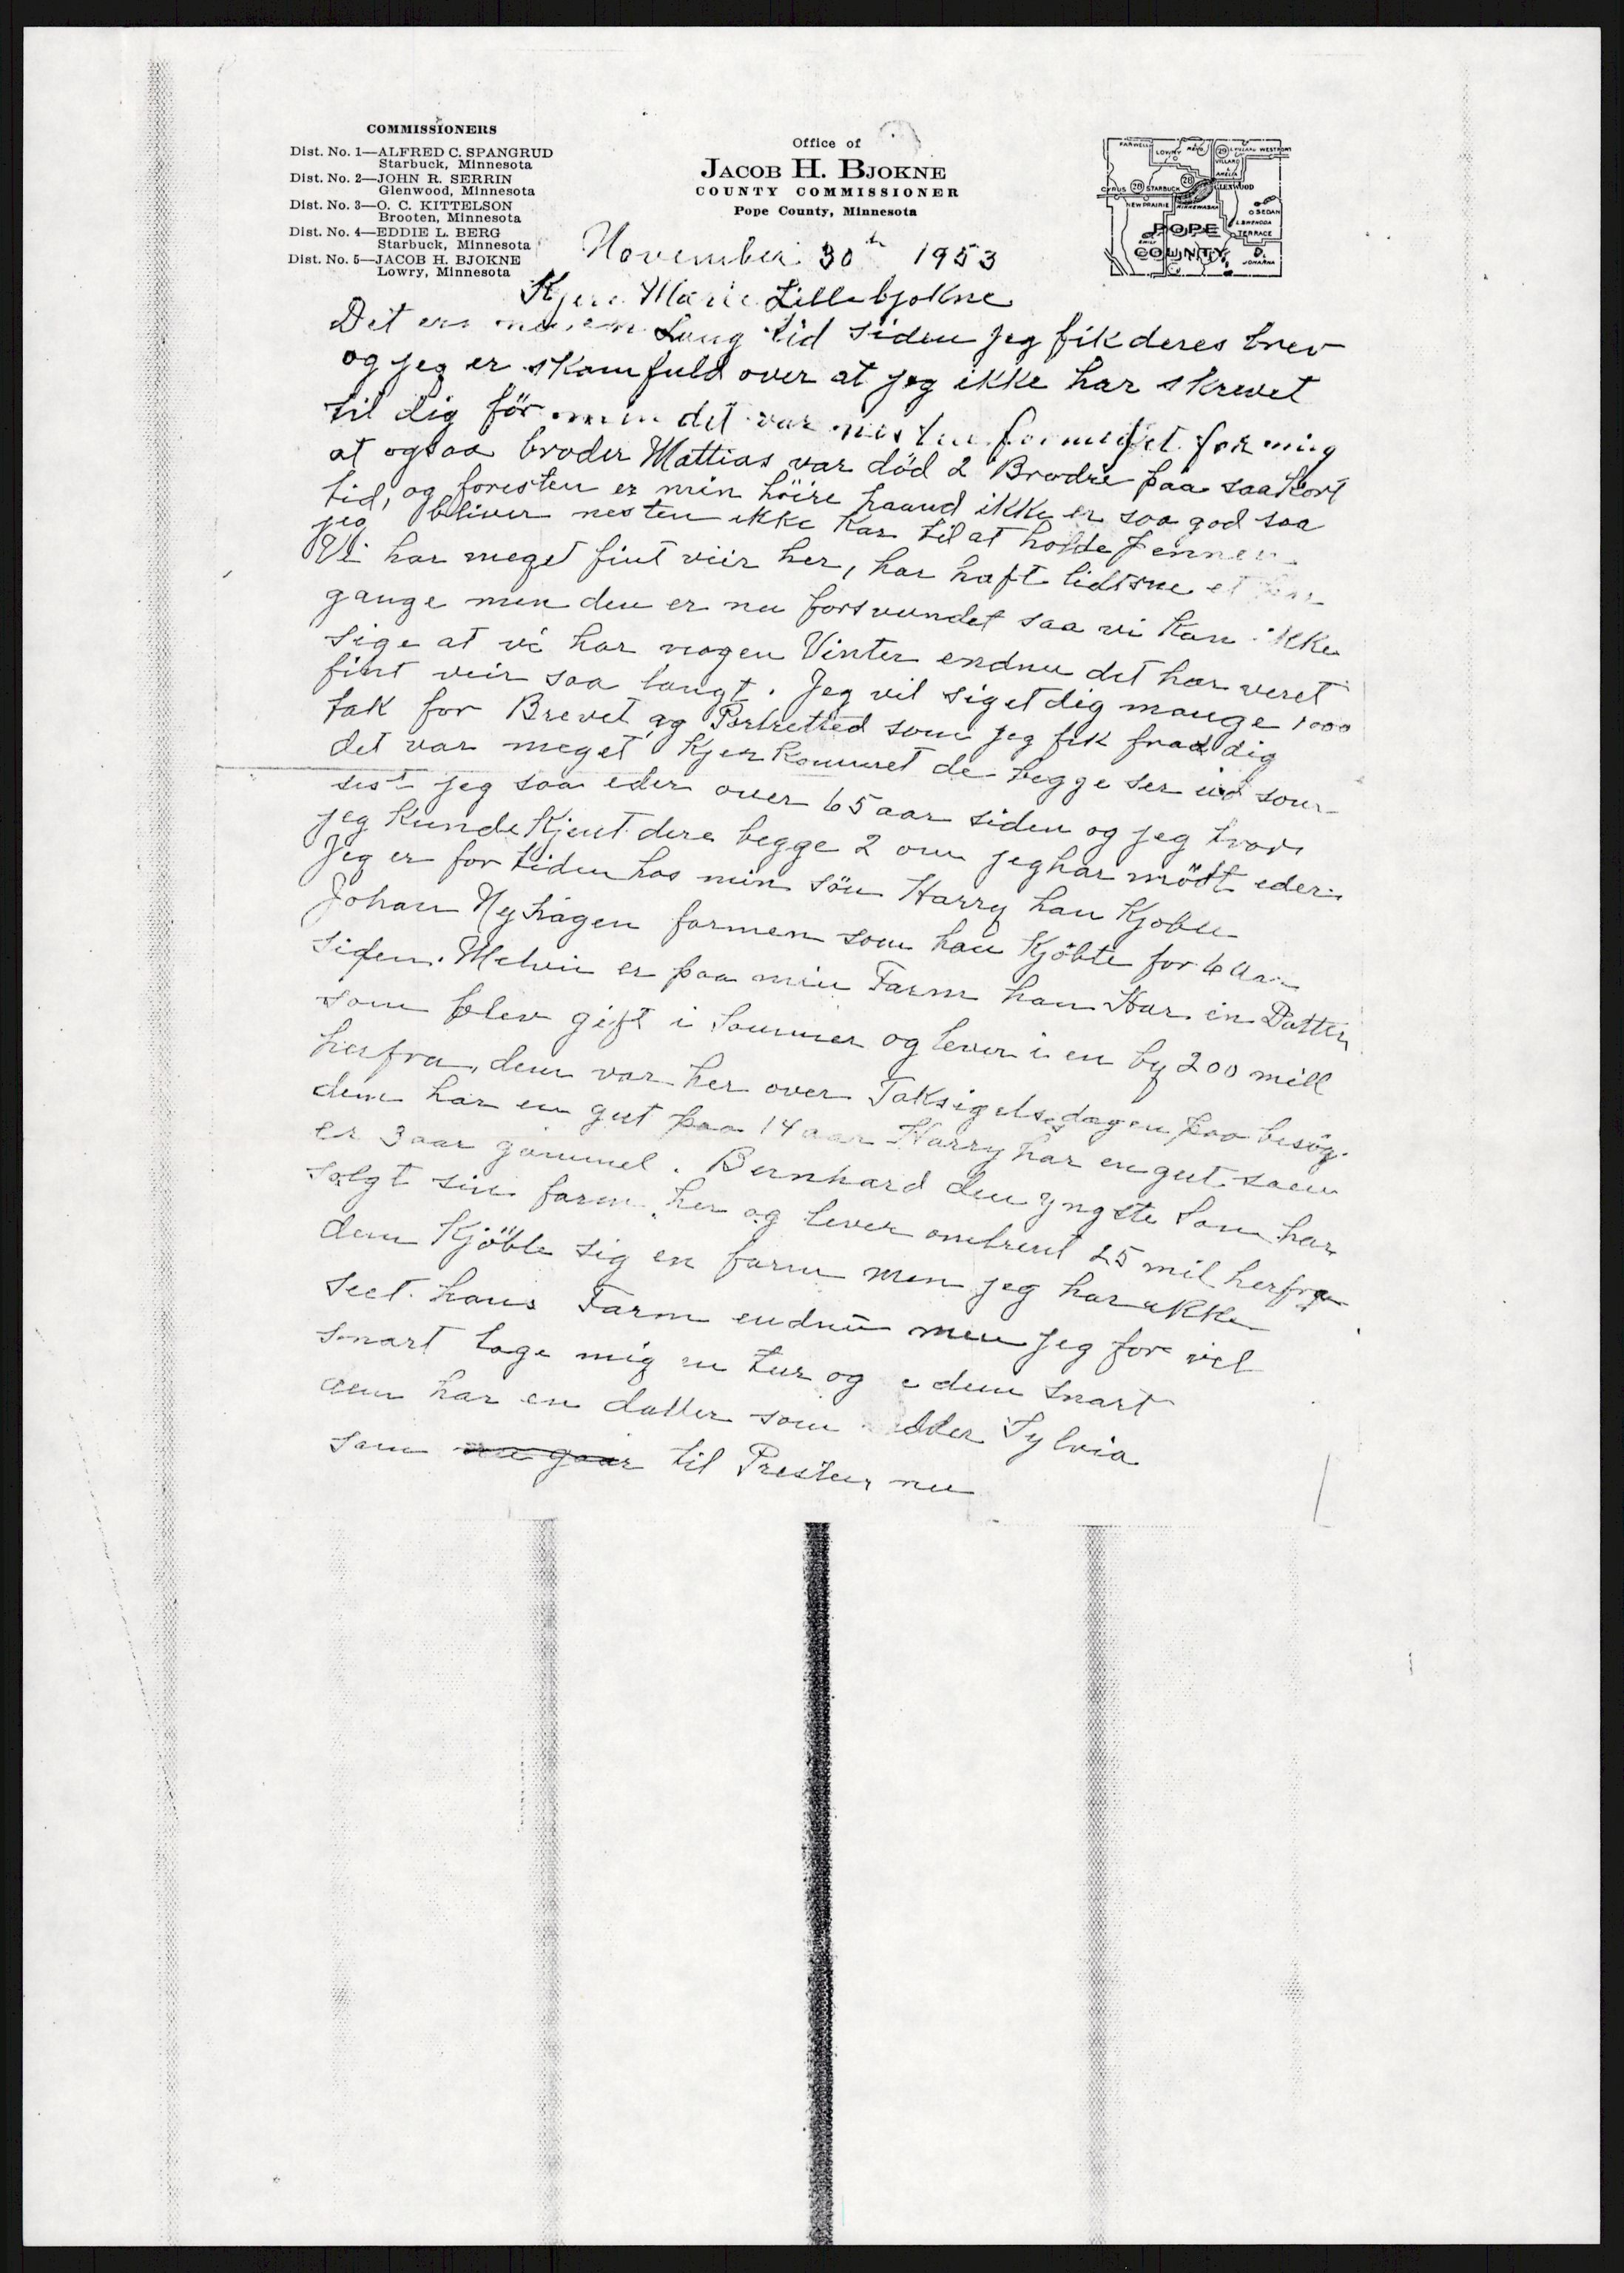 COMMISSIONERS
Dist. No. 1—ALFRED C. SPANGRUD
Starbuck, Minnesota
Dist. No. 2—JOHN R. SERRIN
Glenwood, Minnesota
Dist. No. 3—O. C. KITTELSON
Brooten, Minnesota
Dist. No. 4—EDDIE L. BERG
Starbuck, Minnesota
Dist. No. 5—JACOB H. BJOKNE
Lowry, Minnesota
Office of
JACOB H. BJOKNE
COUNTY COMMISSIONER
Pope County, Minnesota
FARWELL
LOWRY
VILLARD
WESTPORT
CYRUS
28
STARBUCK
28
29
GLENWOOD
NEW PRAIRIE
MINNEWASKA
SEDAN
TERRACE
POPE
COUNTY
November 30th 1953
Kjere Marie Lillebjokne
Det er Lang tid siden jeg fik deres brev
og jeg er skamfuld over at jeg ikke har skrevet
til dig för men det var nesten for meget for mig
at ogsaa broder Mattias var död 2 Brødre paa saa kort
tid, og foresten er min höire haand ikke er saa god saa
jeg bliver nesten ikke Kar til at holde Pennen
Vi har meget fint veir her, har haft lidt sne et par
gange men den er nu forsvundet saa vi kan ikke
sige at vi har nogen Vinter endnu det har veret
fint veir saa langt. Jeg vil siget dig mange 1000
tak for Brevet og Portretted som jeg fik fraa dig
det var meget Kjerkommet de begge ser ud som
sist jeg saa eder over 65 aar siden og jeg tror
jeg kunde Kjent dere begge 2 om jeg har mödt eder.
Jeg er for tiden hos min sön Harry han Kjøbte
Johan Nyhagen farmen som han Kjöbte for 6 Aar
siden. Melvin er paa min Farm han Har en Datter
som blev gift i Sommer og lever i en by 200 mill
herfra, dem var her over Taksigelsedagen paa besög.
dem har en gut paa 14 aar Harry har en gut som
er 3 aar gammel. Bernhard den yngste Son har
solgt sin farm her og lever ombrent 25 mil herfra
dem Kjöbte sig en farm men jeg har ikke
seet hans Farm endnu men jeg for vel
snart tage mig en tur og dem snart
dem har en datter som Sylvia
som nu gaar til Presten nu